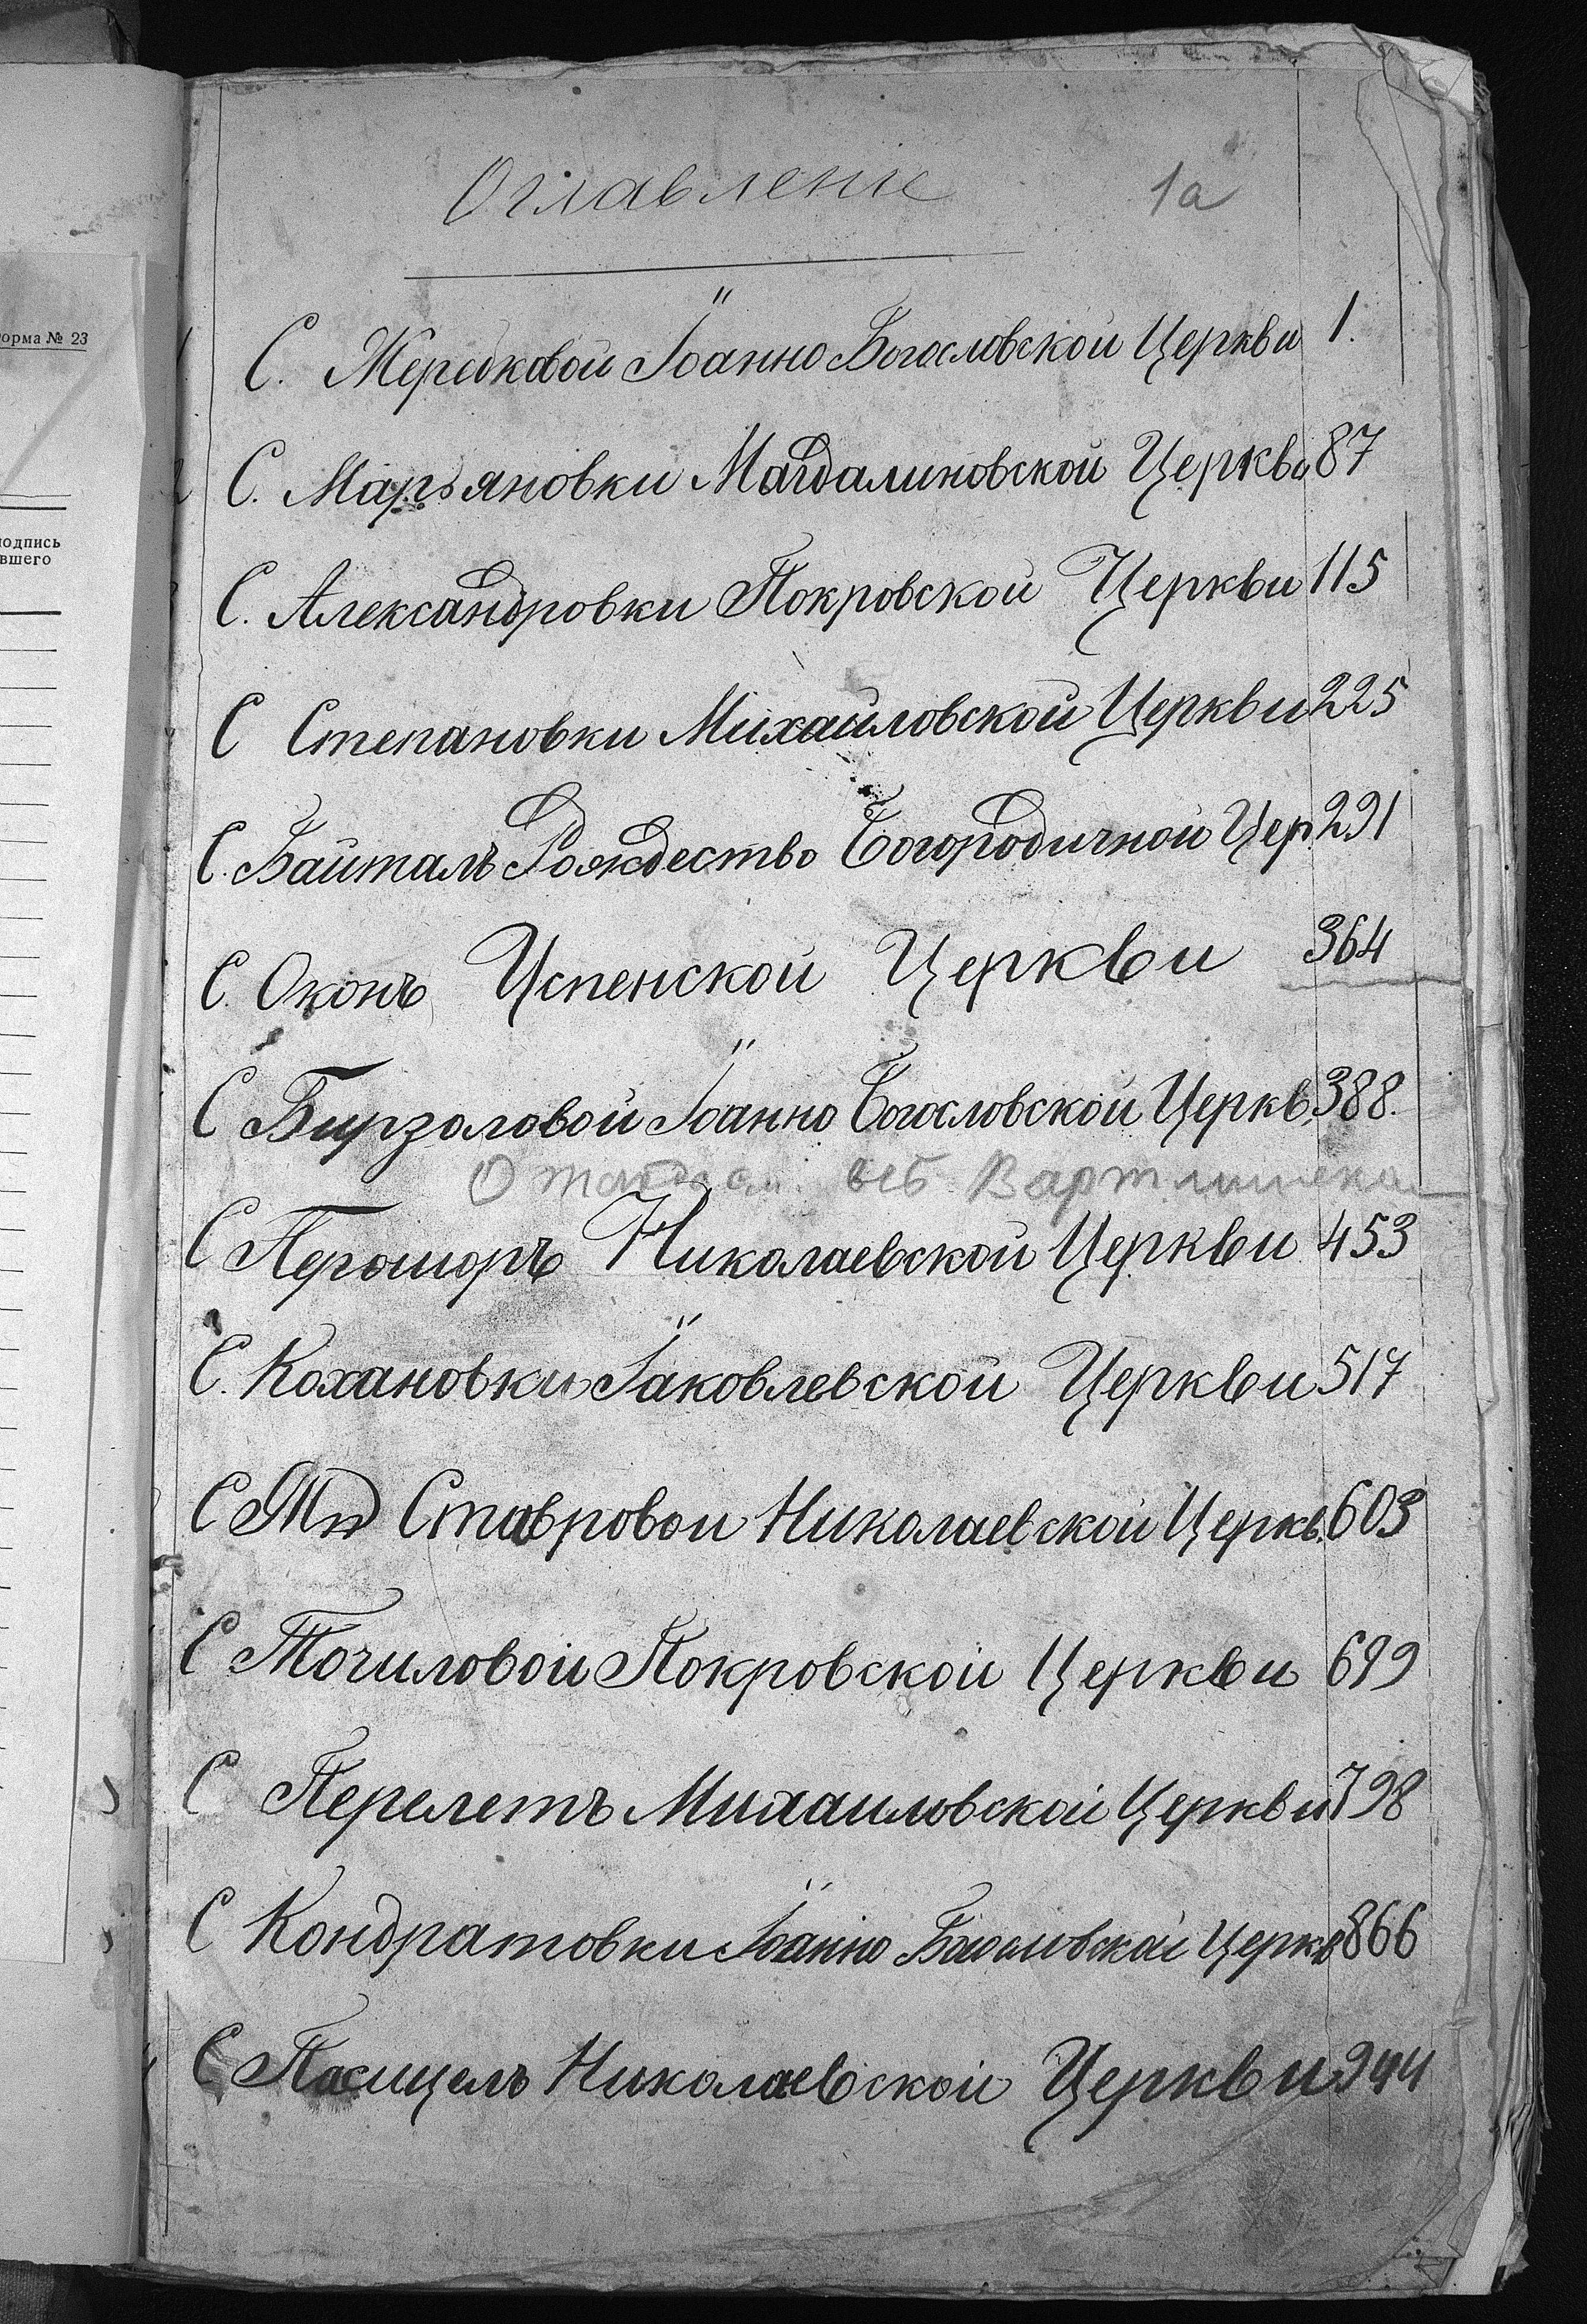 орма № 23
одпись
вшего
Оглавленіе 1а
С. Жеребковой Іоанно Богословской Церкви 1.
С. Марьяновки Магдалиновской Церкви 87
С. Александровки Покровской Церкви 115
С Степановки Михайловской Церкви 225
С. Байталъ Рождество Богородичной Цер. 291
С. Оконъ Успенской Церкви 364
С Бирзоловой Іоанно Богословской Церкв. 388.
С Перошоръ Николаевской Церкви 453
С. Кохановки Іаковлевской Церкви 517
С Ставровой Николаевской Церкв. 603
С Точиловой Покровской Церкви 699
С Перелетъ Михаиловской Церкви 798
С Кондратовки Іоанно Богословской Церкв 866
С Пасицелъ Николаевской Церкви 944